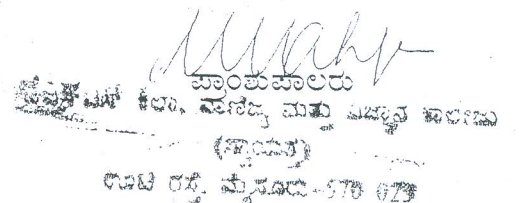 ಪ್ರಾಂಶುಪಾಲರು
ಕಲಾ, ವಾಣಿಜ್ಯ ಮತ್ತು ವಿಜ್ಞಾನ ಕಾಲೇಜು
(ಸ್ವಾಯತ್ತ)
ಊಟಿ ರಸ್ತೆ, ಮೈಸೂರು-570 025